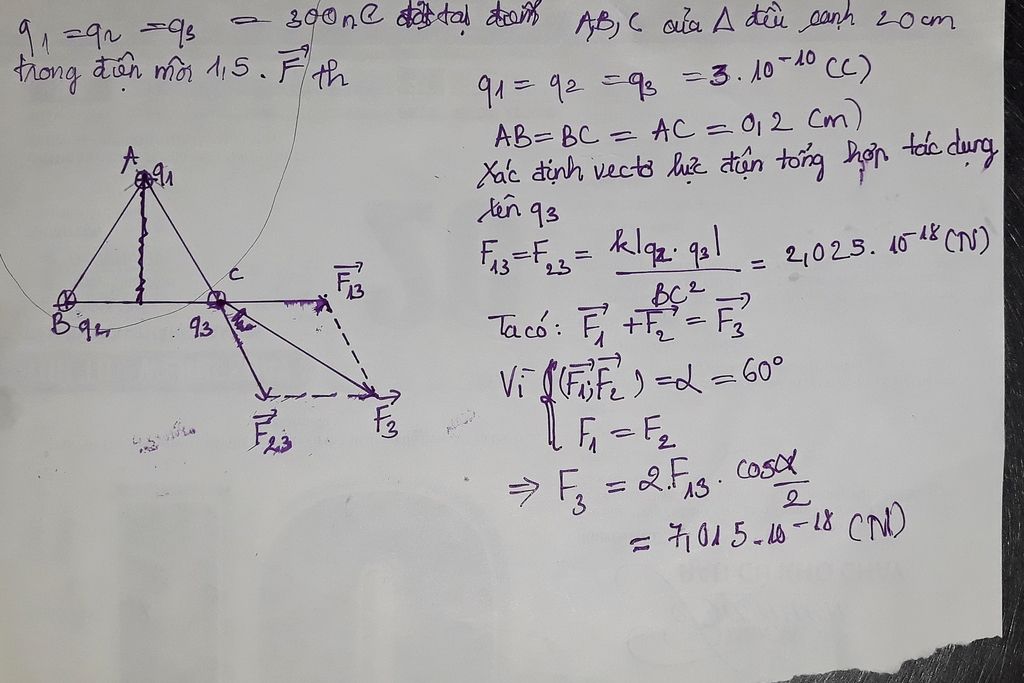 q1 = q2 = q3 = 300nC đặt tại đỉnh A,B,C của Δ đều cạnh 20cm
trong điện môi 1,5. F⃗ th
q1 = q2 = q3 = 3.10⁻¹⁰ (C)
AB = BC = AC = 0,2 (m)
Xác định vectơ lực điện tổng hợp tác dụng
lên q3
F13 = F23 = k|q2.q3| / BC² = 2,025.10⁻¹⁸ (N)
Ta có: F⃗1 + F⃗2 = F⃗3
Vì { (F⃗1;F⃗2) = α = 60°
F1 = F2
⇒ F3 = 2.F13.cos α/2
= 7,015.10⁻¹⁸ (N)
A q1
B q2
q3 C
F⃗13
F⃗23
F⃗3